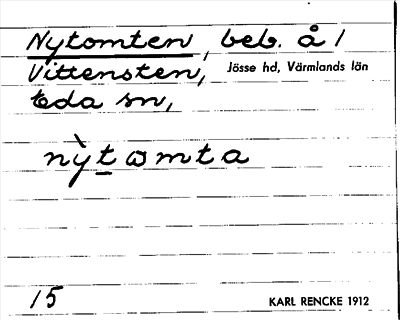 Nytomten, beb. å 1
Vittensten, Jösse hd, Värmlands län
Eda sn,
nỳt̲ɷmta
15 KARL RENCKE 1912